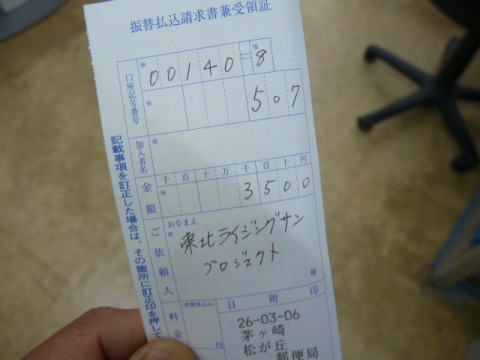 振替払込請求書兼受領証
口座記号番号
00140-8
507
加入者名
金額
千百十万千百十円
3500
ご依頼人
おなまえ
東北ライジングサン
プロジェクト
様
料金
(消費税込み)
円
日附印
26-03-06
茅ヶ崎
松が丘
郵便局
記載事項を訂正した場合は、その箇所に訂正印を押して